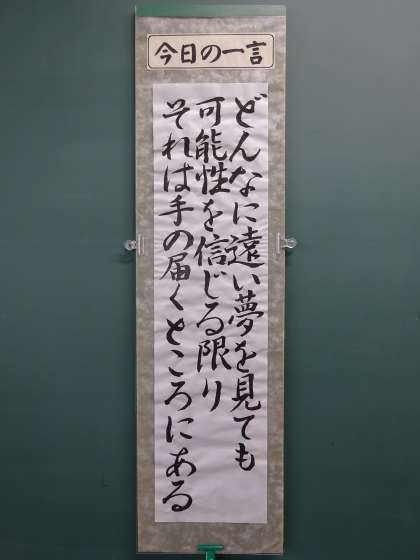 今日の一言
どんなに遠い夢を見ても
可能性を信じる限り
それは手の届くところにある